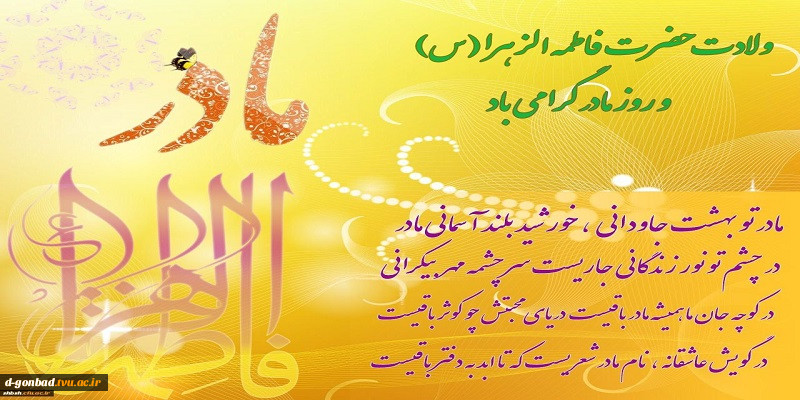 ولادت حضرت فاطمه الزهرا (س)
و روز مادر گرامی باد
مادر
فاطمة الزهراء
مادر تو بهشت جاودانی ، خورشید بلند آسمانی مادر
در چشم تو نور زندگانی جاریست سرچشمه مهر بیکرانی
در کوچه جان ما همیشه مادر باقیست دریای محبتش چو کوثر باقیست
در گویش عاشقانه ، نام مادر شعریست که تا ابد به دفتر باقیست
d-gonbad.tvu.ac.ir